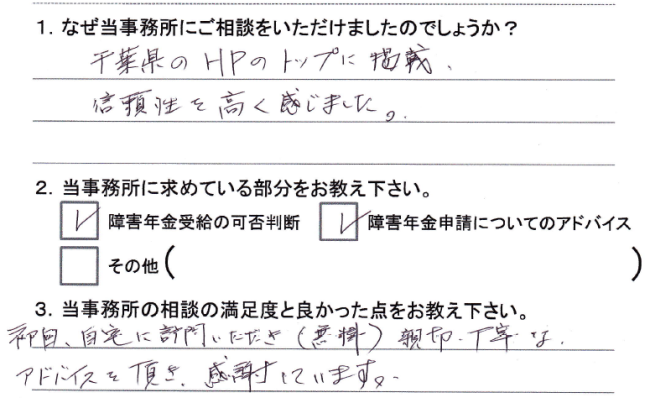 1. なぜ当事務所にご相談をいただけましたのでしょうか？
千葉県のHPのトップに掲載、
信頼性を高く感じました。
2. 当事務所に求めている部分をお教え下さい。
障害年金受給の可否判断 障害年金申請についてのアドバイス
その他( )
3. 当事務所の相談の満足度と良かった点をお教え下さい。
初回、自宅に訪問いただき(無料) 親切・丁寧な
アドバイスを頂き、感謝しています。